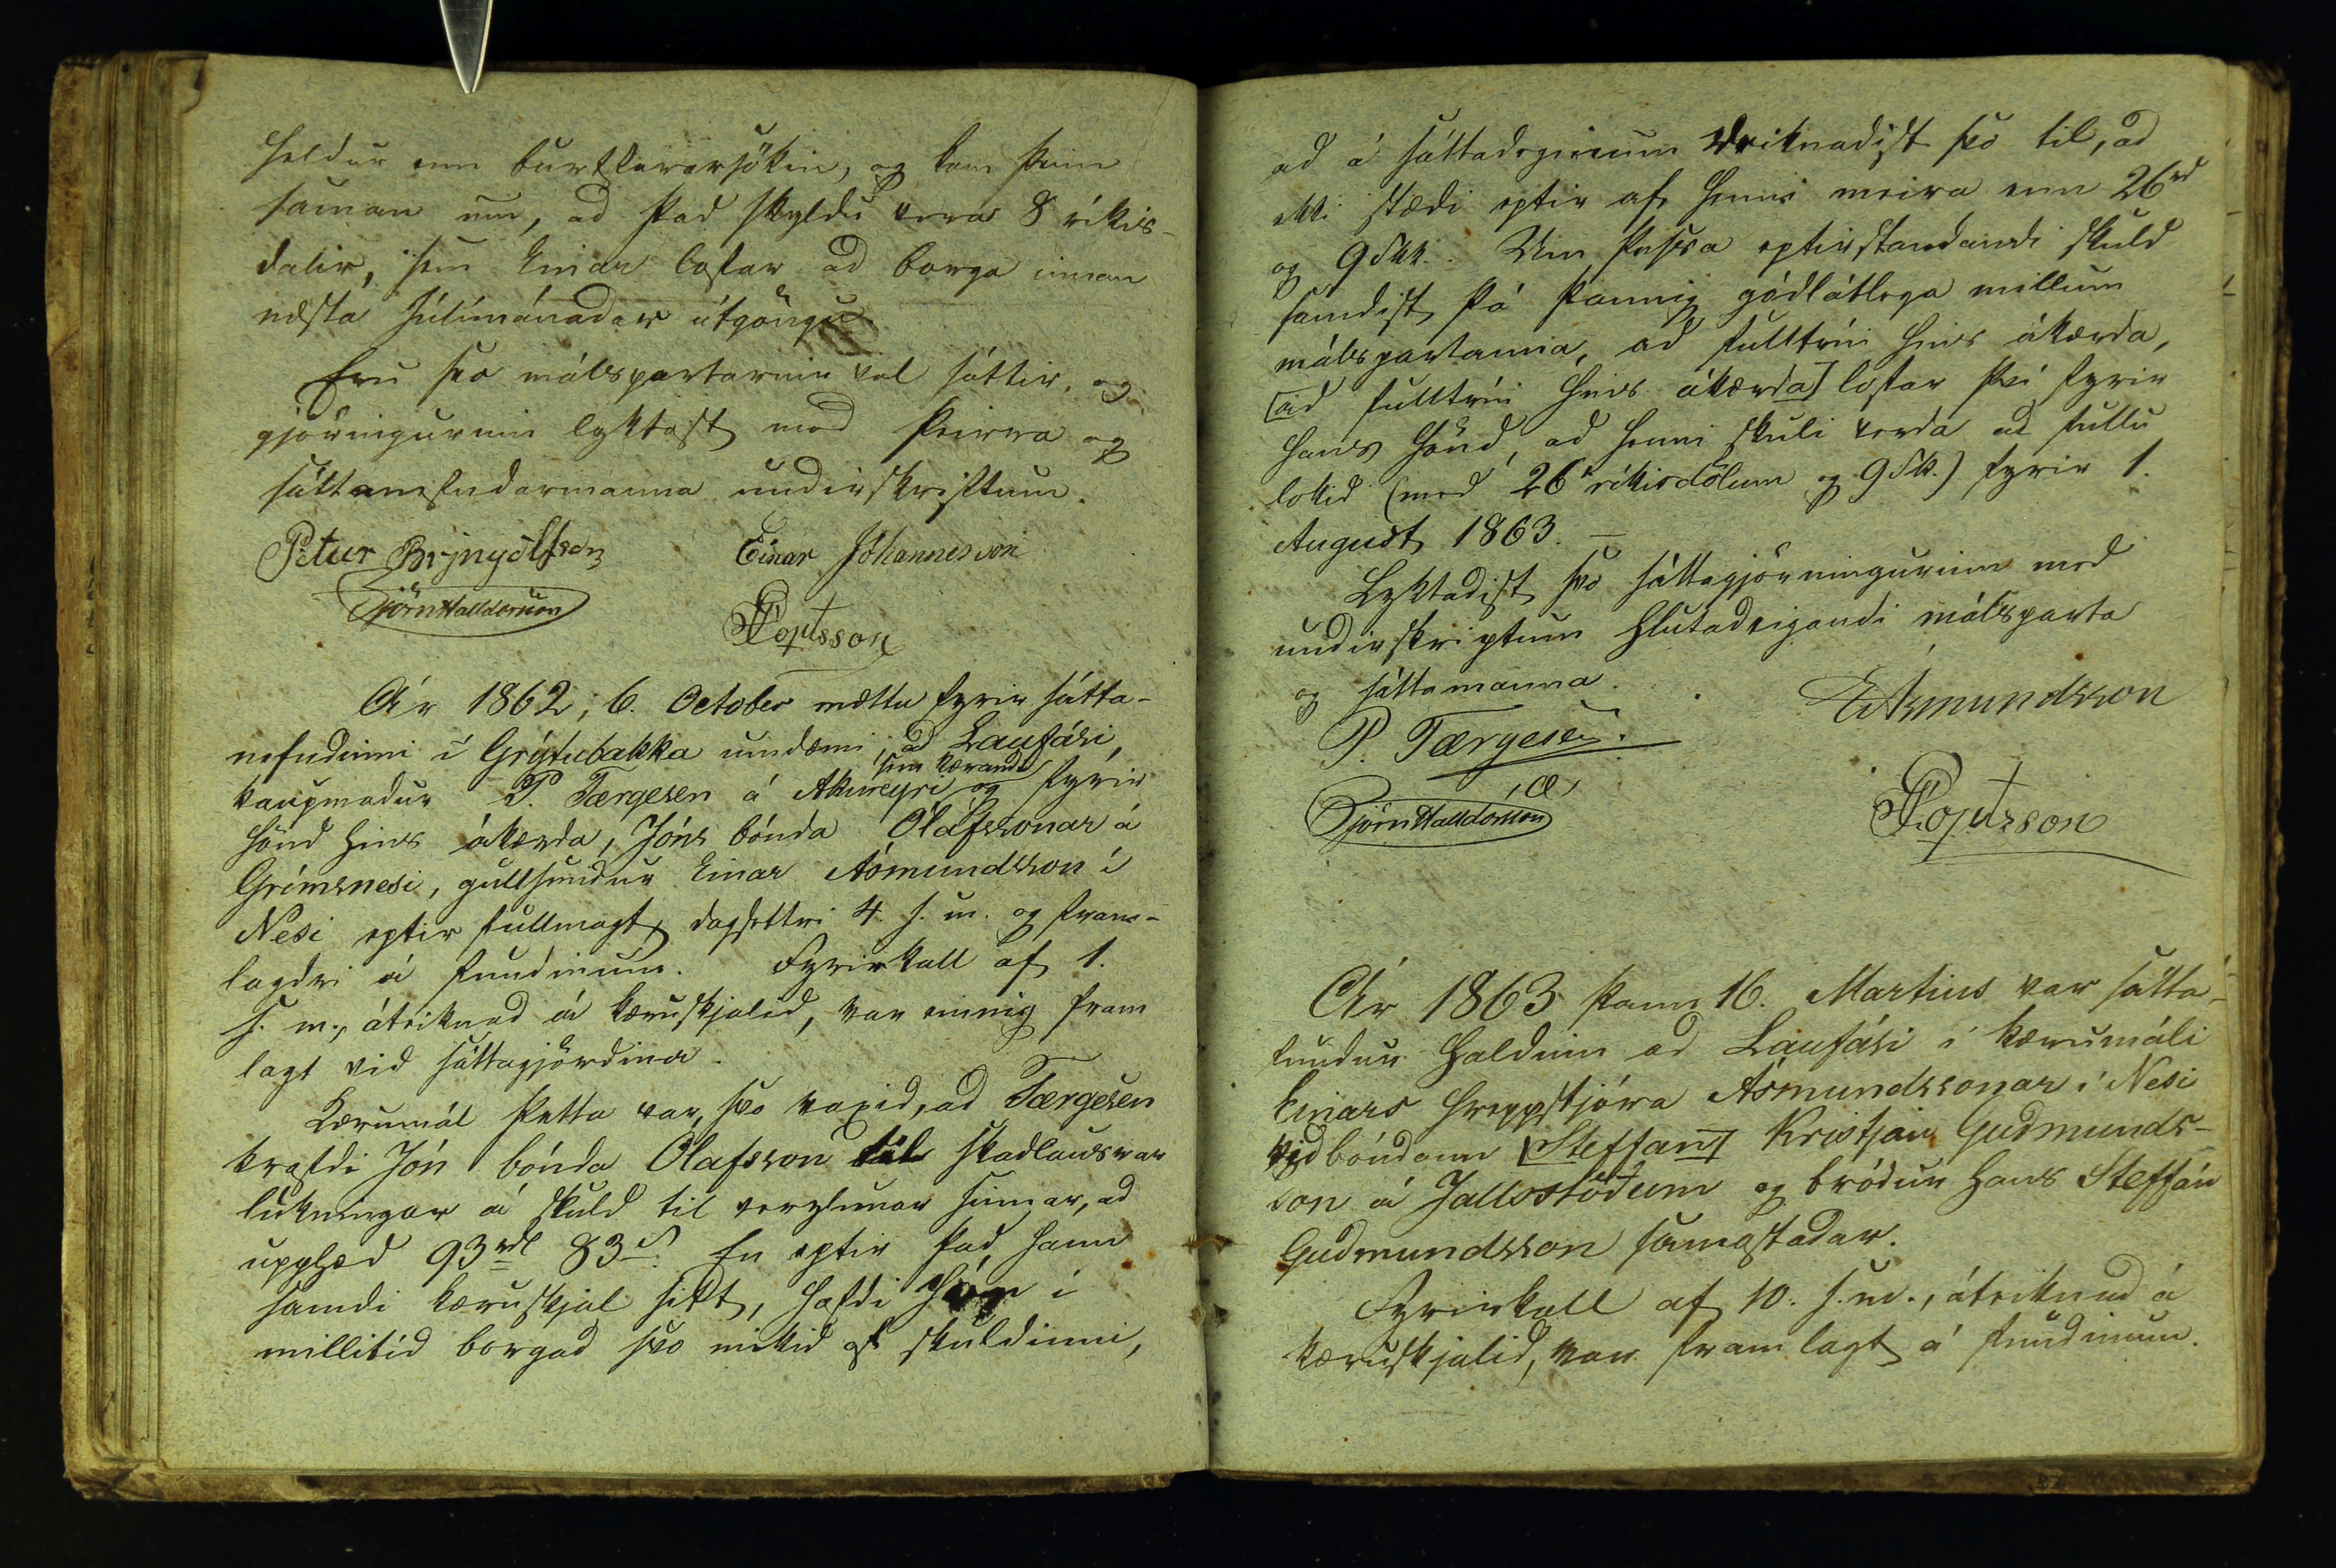 heldur enn burtfararsökin, og kom þeim
saman um, ad þad skyldi vera 8 ríkis-
dalir, sem Einar lofar ad borga innan
næsta Júlímánadar útgöngu
Eru svo málspartarnir vel sáttir, og
gjörningurinn lyktast med þeirra og
sáttanefndarmanna undirskriftum.
Pétur Brynjólfsson Einar Jóhannesson
Björn Halldórsson
Loptsson
Ár 1862, 6. October mættu fyrir sátta-
nefndinni í Grýtubakka umdæmi, ad Laufási,
sem kærandi
kaupmadur P. Tærgesen á Akureyri og fyrir
hönd hins ákærda, Jóns bónda Ólafssonar á
Grímsnesi, gullsmidur Einar Ásmundsson í
Nesi eptir fullmagt, dagsettri 4. s. m. og fram-
lagdri á fundinum. Fyrirkall af 1.
s. m., áteiknad á kæruskjalid, var einnig fram
lagt vid sáttagjördina.
Kærumál þetta var svo vaxid, ad Tærgesen
krafdi Jón bónda Olafsson til skadlausrar
lukningar á skuld til verzlunar sinnar, ad
upphæd 93 rdl 83 s. En eptir þad hann
samdi kæruskjal sitt, hafdi Jón í
millitíd borgad svo mikid af skuldinni,
ad á sáttadeginum reiknadist svo til, ad
ekki stædi eptir af henni meira enn 26 rd
og 9 skk. Um þessa eptirstandandi skuld
samdist þá þannig gódlátlega millum
málspartanna, ad fulltrúi hins ákærda,
[ad fulltrúi hins ákærda] lofar því fyrir
hans hönd, ad henni skuli verda ad fullu
lokid (med 26 ríkisdölum og 9 sk.) fyrir 1.
August 1863. –
Lyktadist svo sáttagjörningurinn med
undirskriptum hlutadeigandi málsparta
og sáttamanna.
P. Tærgesen. EÁsmundsson
Björn Halldórsson Loptsson
Ár 1863 þann 16. Martius var sátta-
fundur haldinn ad Laufási í kærumáli
Einars hreppstjóra Ásmundssonar í Nesi
vid bóndann [Steffan] Kristján Gudmunds-
son á Jallsstödum og bródur hans Steffán
Gudmundsson samastadar.
Fyrirkall af 10. s. m., áteiknad á
kæruskjalid, var framlagt á fundinum.